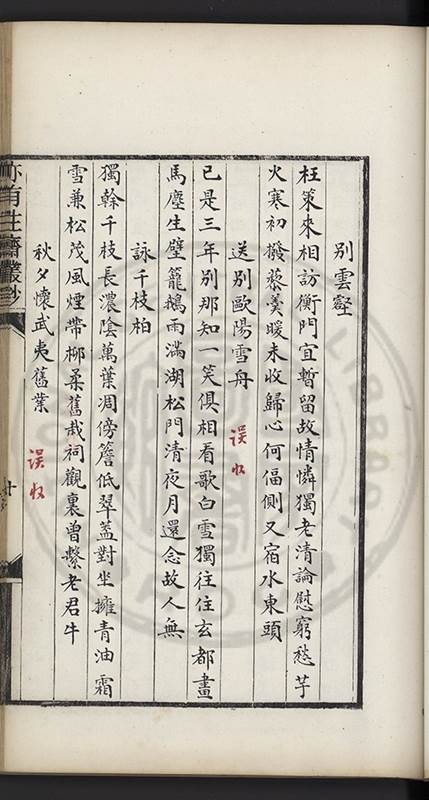 別雲壑
枉策來相訪衡門宜暫留故情憐獨老清論慰窮愁芋
火寒初撥藜羹暖未收歸心何偪側又宿水東頭
送別歐陽雪舟 误收
已是三年別那知一笑俱相看歌白雪獨往住玄都畫
馬塵生壁籠鵝雨滿湖松門清夜月還念故人無
詠千枝柏
獨幹千枝長濃陰萬葉凋傍簷低翠蓋對坐擁青油霜
雪兼松茂風煙帶柳柔舊栽祠觀裏曾繫老君牛
秋夕懷武夷舊業 误收
亦有生齋叢鈔